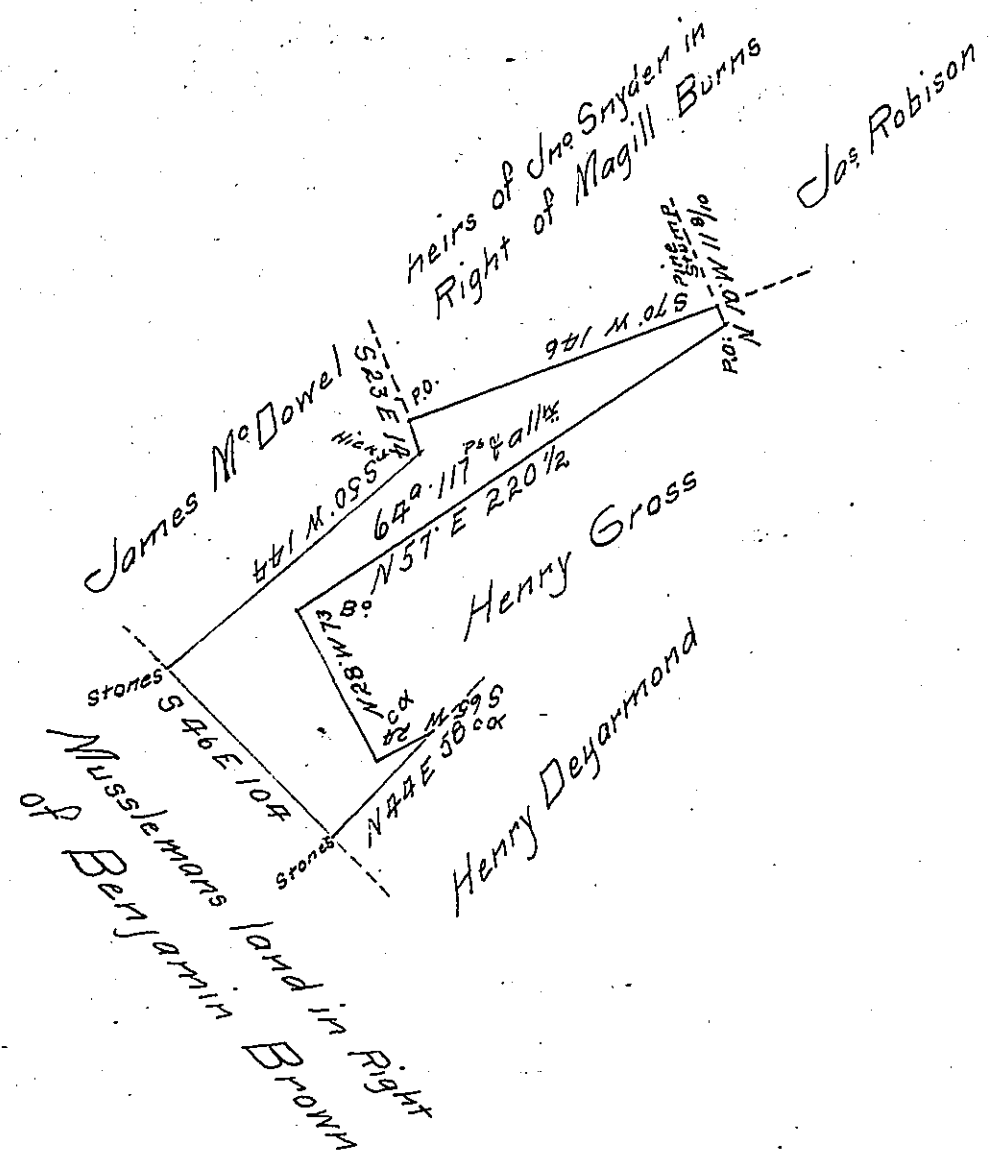 heirs of Jno Snyder in
Right of Magill Burns
Jas. Robison
James McDowel
S 23 E 18
P.O.
Hickry
S 70° W 146
Pine
Stump
N 10° W 11 8/10
P.O.
S 50° W 144
64a. 117 Ps & allwe
N 57° E 220 1/2
Henry Gross
B.O.
N 28° W 73
W.O.
24
S 65° W
W.O.
N 44 E 58
Henry Deyarmond
Stones
S 46 E 104
Stones
Musslemans land in Right
of Benjamin Brown